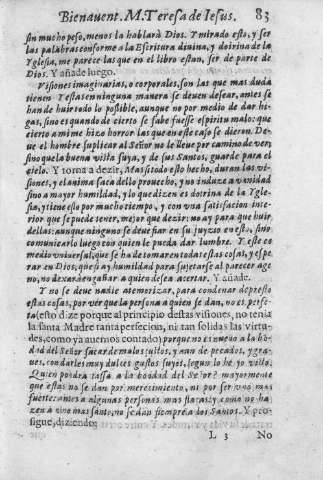 Bienauent. M. Teresa de Iesus. 83
sin mucho peso, menos la hablarà Dios. Y mirado esto, y ser
las palabras conforme a la Escritura diuina, y dotrina de la
Yglesia, me parece las que en el libro estan, ser de parte de
Dios. Y añade luego.
Visiones imaginarias, o corporales, son las que mas duda
tienen y estas en ninguna manera se deuen dessear, antes se
han de huir todo lo possible, aunque no por medio de dar hi-
gas, sino es quando de cierto se sabe fuesse espiritu malo: que
cierto a mi me hizo horror las que en este caso se dieron. De-
ue el hombre suplicar al Señor no le lleue por camino de ver,
sino que la buena vista suya, y de sus Santos, guarde para el
cielo. Y torna a dezir, Mas si todo esto hecho, duran las vi-
siones, y el anima saca dello prouecho, y no induze a vanidad
sino a mayor humildad, y lo que dizen es dotrina de la Ygle-
sia, y tiene esto por mucho tiempo, y con vna satisfacion inte-
rior que se puede tener, mejor que dezir: no ay para que huir
dellas: aunque ninguno se deue fiar en su juyzio en esto, sino
comunicarlo luego con quien le pueda dar lumbre. Y este es
medio vniuersal, que se ha de tomar en todas estas cosas, y espe
rar en Dios, que si ay humildad para sujetarse al parecer age
no, no dexarà engañar a quien desea acertar. Y añade.
Y no se deue nadie atemorizar, para condenar de presto
estas cosas, por ver que la persona a quien se dan, no es perfe-
ta (esto dize porque al principio destas visiones, no tenia
la santa Madre tanta perfecion, ni tan solidas las virtu-
des, como ya auemos contado) porque no es nueuo a la bo-
dad del Señor sacar de malos justos, y aun de pecados, y gra-
ues, con darles muy dulces gustos suyos, segun lo he yo visto.
Quien pondra tassa a la bondad del Señor? mayormente
que estas no se dan por merecimiento, ni por ser vno mas
fuerte: antes a algunas personas mas flacas: y como no ha
zen a vno mas santo, no se dan siempre a los Santos. Y pro-
sigue, diziendo;
L 3 No